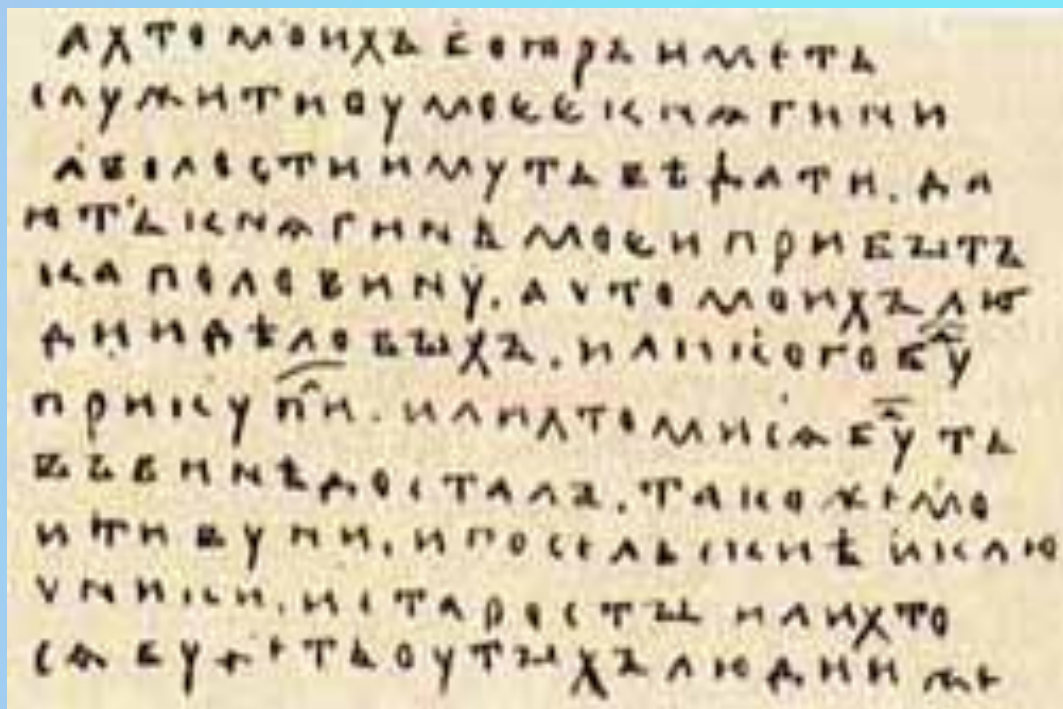 а хто моихъ боꙗръ иметь
служити оу моее кнѧгини
а волости имуть вѣдати. да
ють кнѧгинѣ моеи прибытъ
ка половину. а что моихъ лю
дии дѣловыхъ. или кого бу
прикупи. или хто ми сѧ буть
въ винѣ досталъ. тако же мо
и тивуни. и посельскиѣ и клю
чники. и старосты или хто
сѧ будеть оу тыхъ людии же